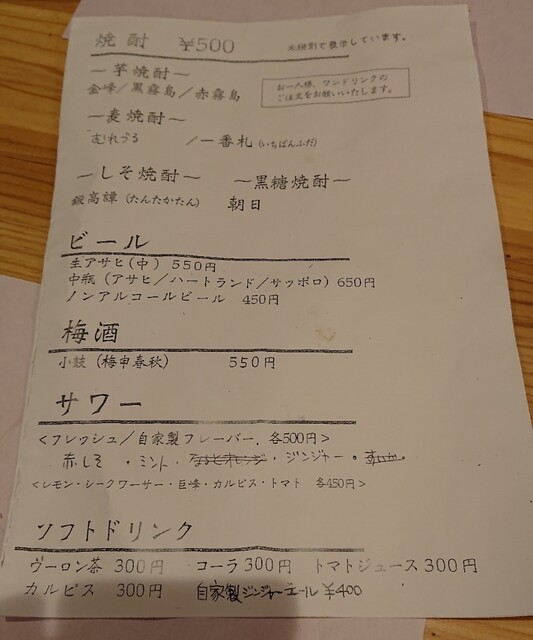 焼酎 ¥500
※税別で表示しています。
〜芋焼酎〜
お一人様、ワンドリンクの
ご注文をお願いいたします。
金峰／黒霧島／赤霧島
〜麦焼酎〜
むれづる ／一番札(いちばんふだ)
〜しそ焼酎〜 〜黒糖焼酎〜
鍛高譚(たんたかたん) 朝日
ビール
生アサヒ(中) 550円
中瓶(アサヒ／ハートランド／サッポロ) 650円
ノンアルコールビール 450円
梅酒
小鼓(梅申春秋) 550円
サワー
＜フレッシュ／自家製フレーバー、各500円＞
赤しそ ・ミント・ オレンジ・ジンジャー・すいか
＜レモン・シークワーサー・巨峰・カルピス・トマト 各450円＞
ソフトドリンク
ウーロン茶 300円 コーラ 300円 トマトジュース 300円
カルピス 300円 自家製ジンジャーエール ¥400